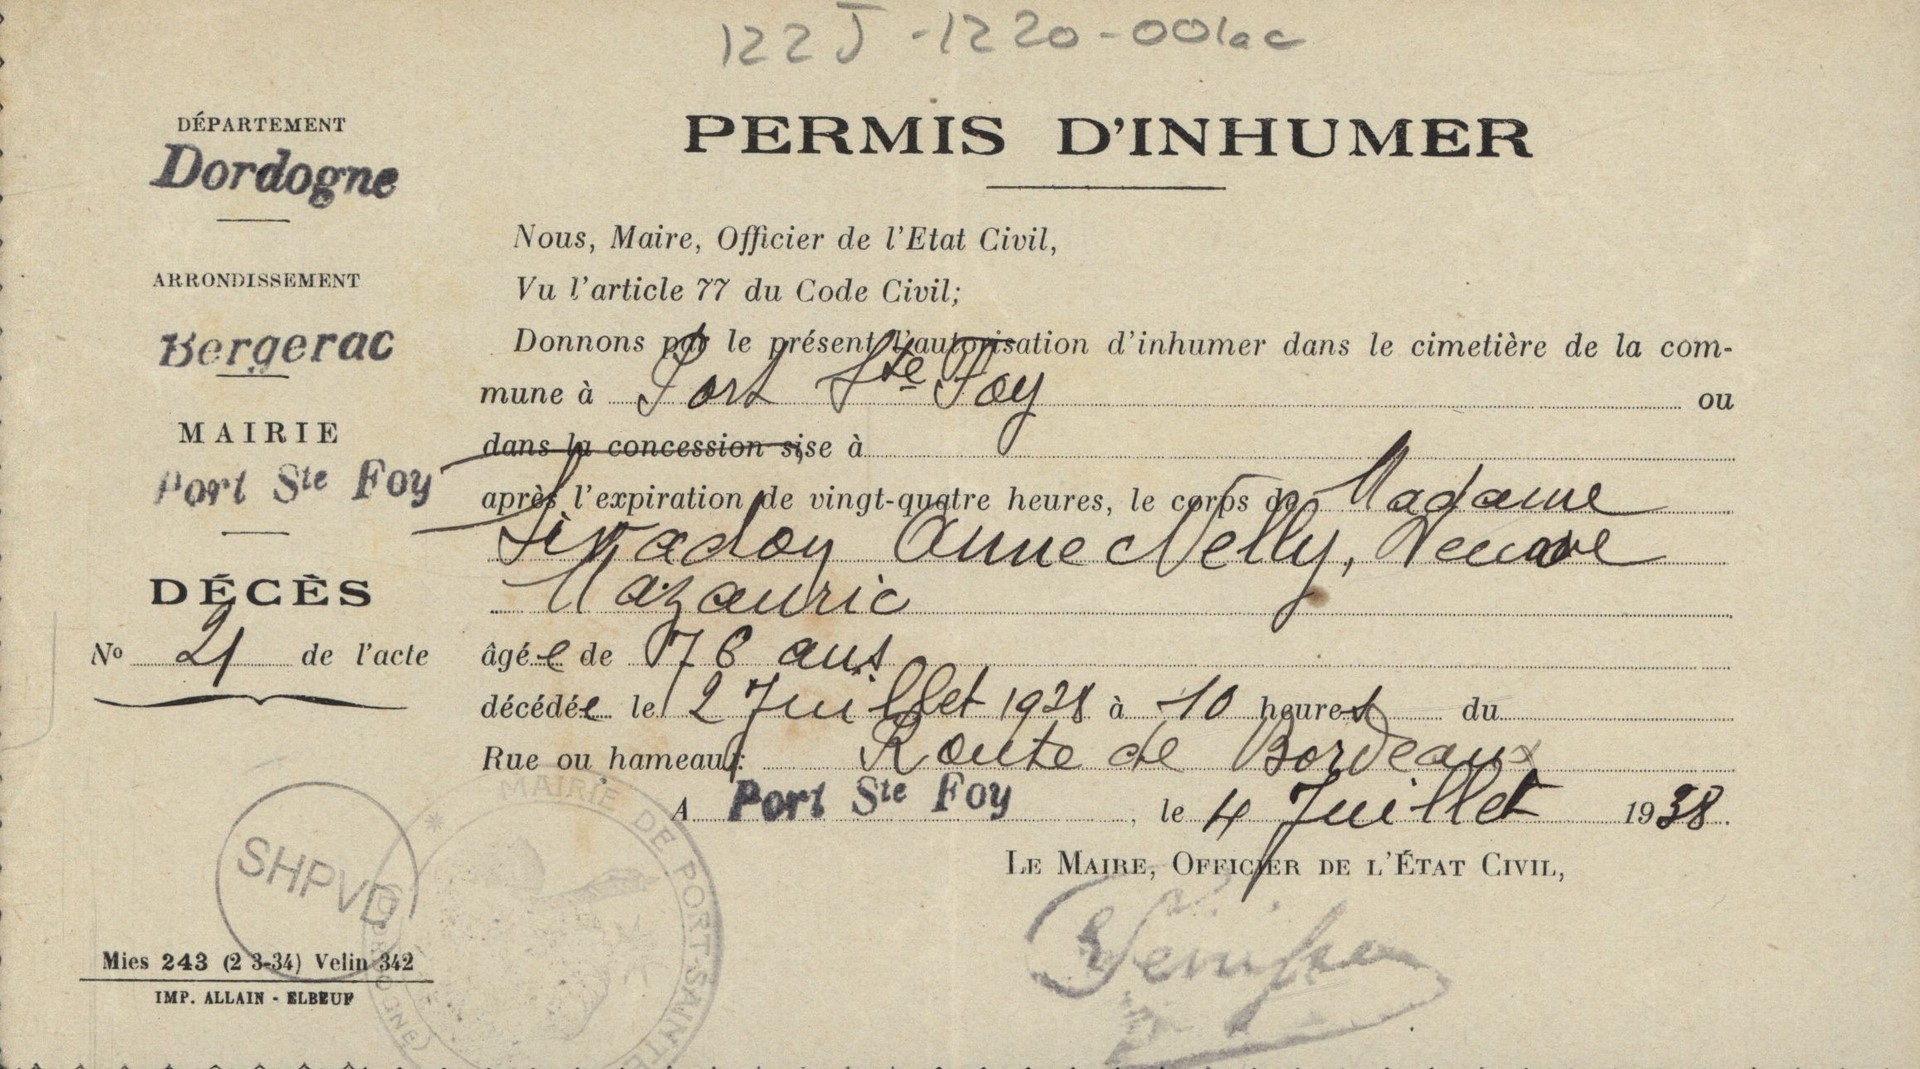 122J-1220-001ac
DÉPARTEMENT
Dordogne
ARRONDISSEMENT
Bergerac
MAIRIE
Port Ste Foy
DÉCÈS
No 21 de l'acte
PERMIS D'INHUMER
Nous, Maire, Officier de l'Etat Civil,
Vu l'article 77 du Code Civil;
Donnons par le présent l'autorisation d'inhumer dans le cimetière de la com-
mune à Port Ste Foy ou
dans la concession sise à
après l'expiration de vingt-quatre heures, le corps de Madame
Sivadon Anne Nelly, Veuve
Mazauric
âgée de 76 ans
décédée le 2 Juillet 1938 à 10 heures du
Rue ou hameau: Route de Bordeaux
A Port Ste Foy, le 4 Juillet 1938.
LE MAIRE, OFFICIER DE L'ÉTAT CIVIL,
SHPVD
MAIRIE DE PORT-SAINTE
Mies 243 (2 3-34) Velin 342
IMP. ALLAIN - ELBEUF